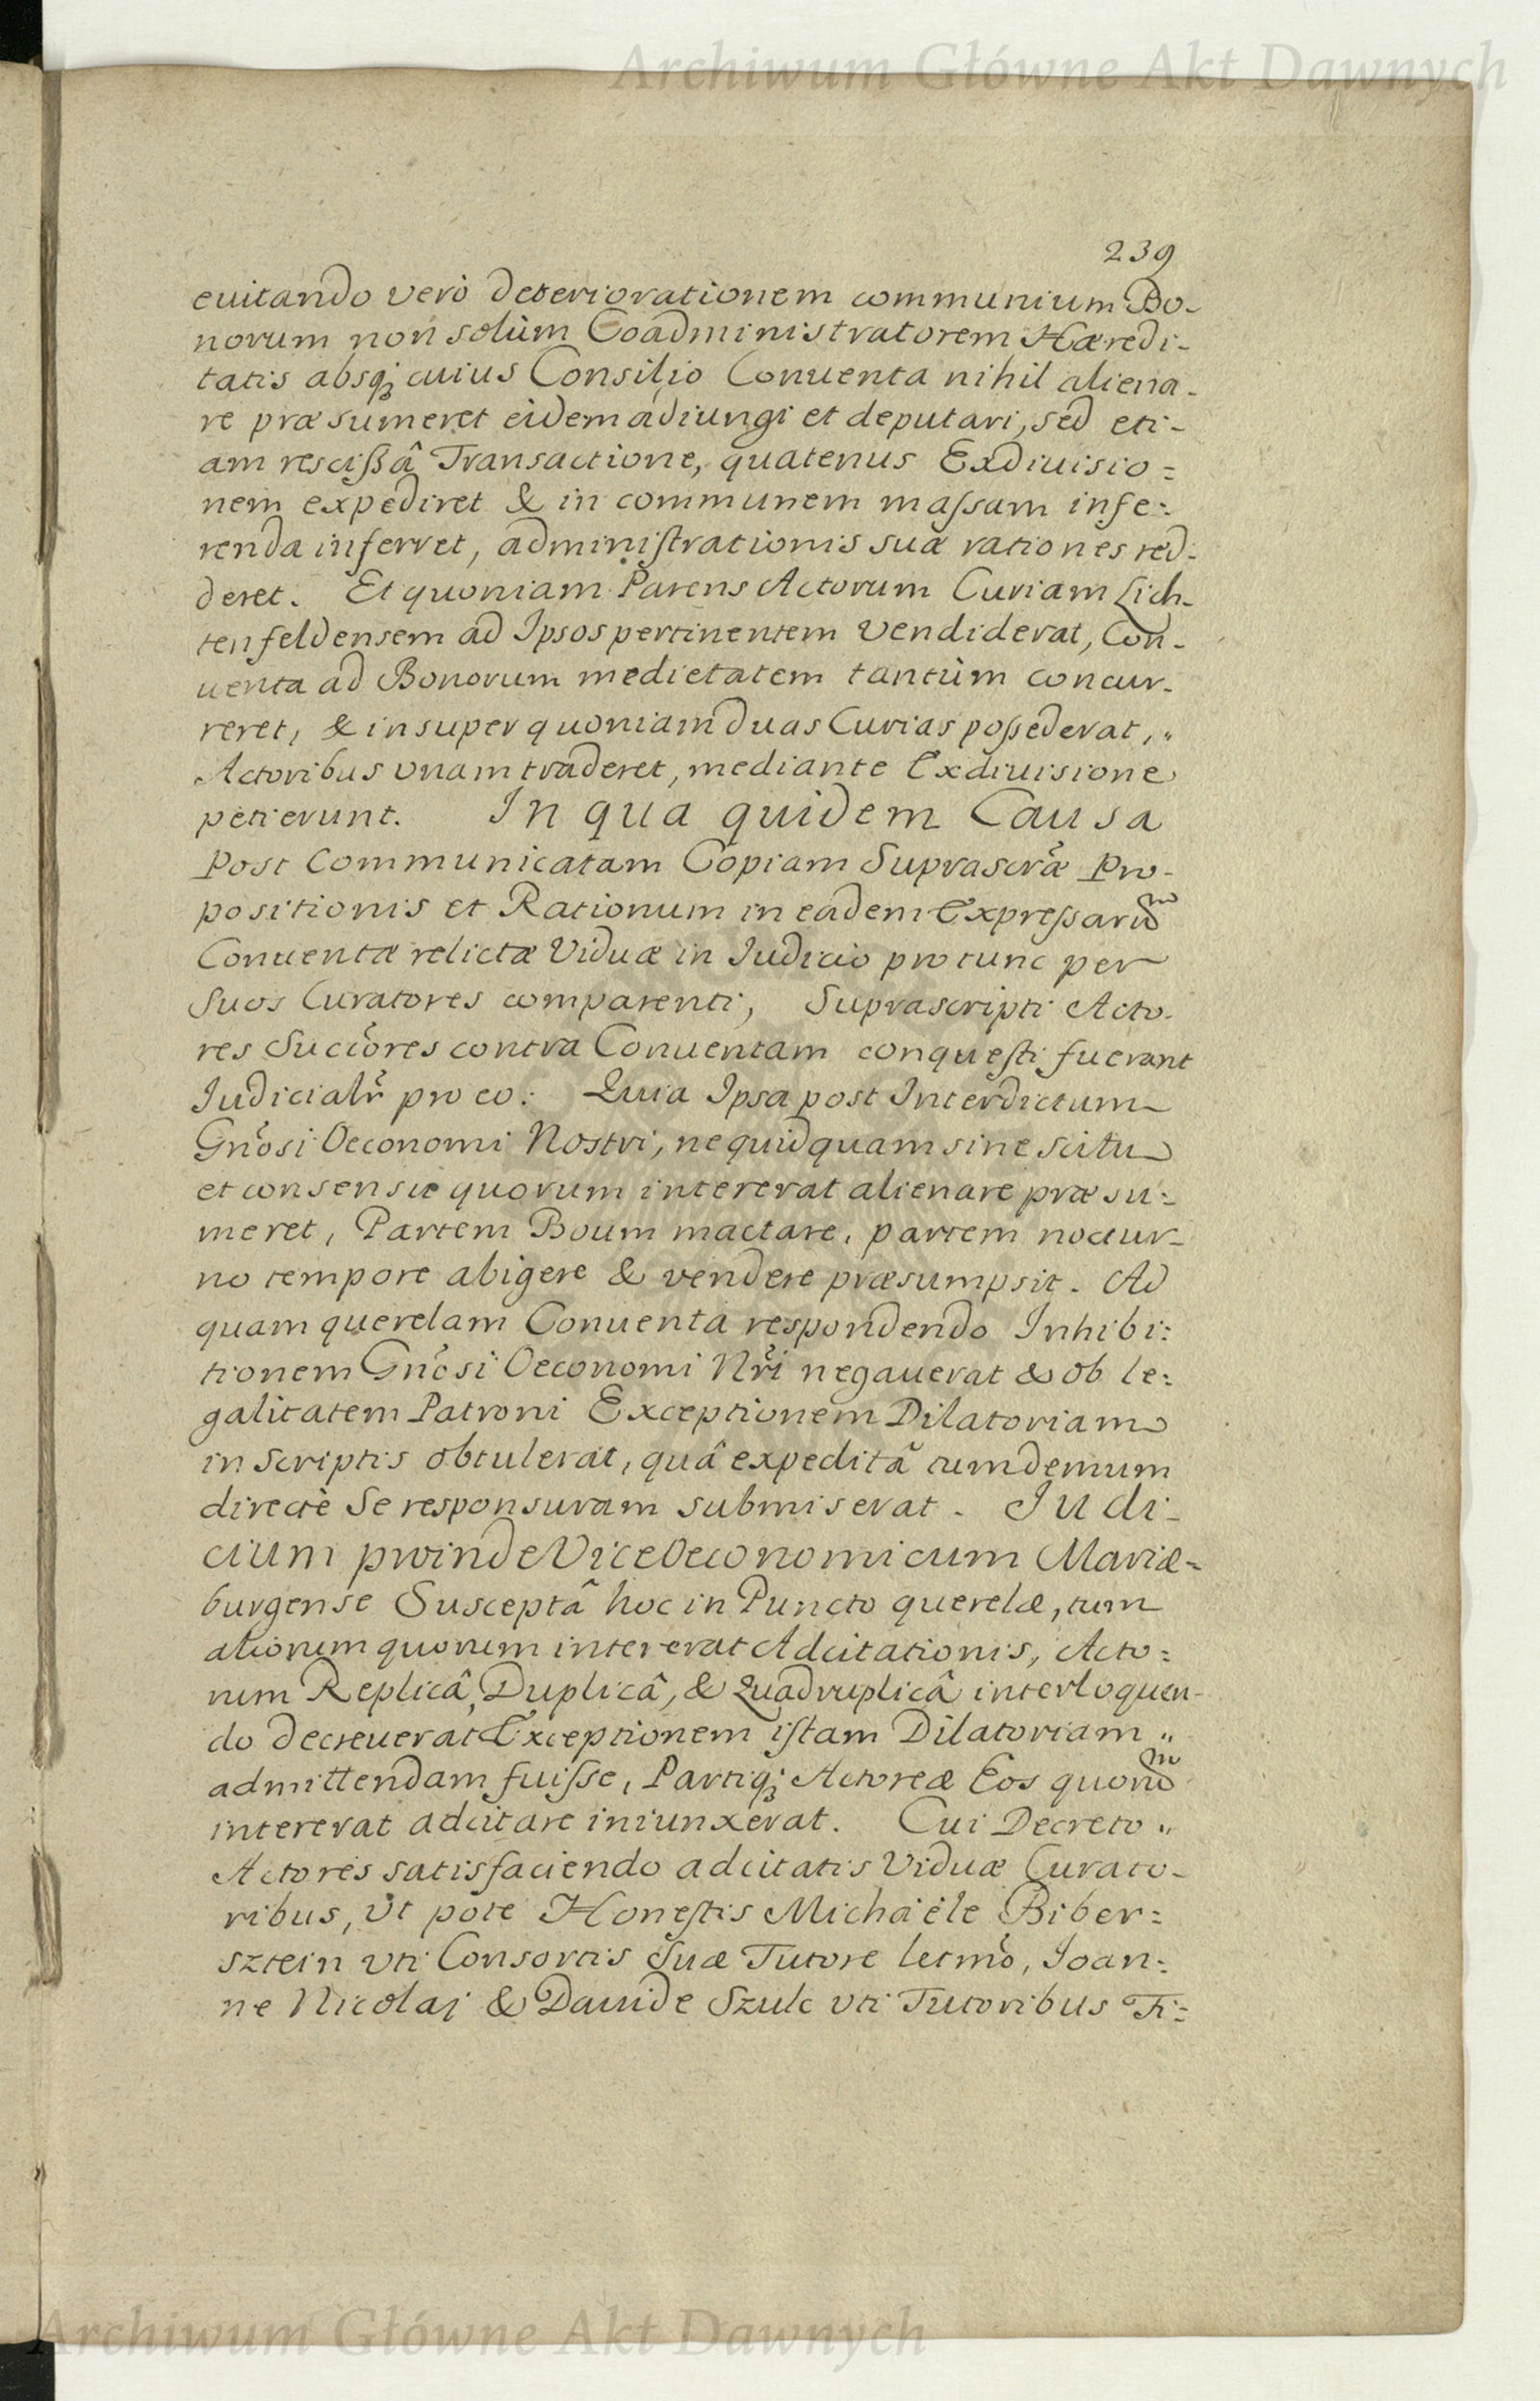 Archiwum Główne Akt Dawnych
239
euitando verò deteriorationem communium Bo-
norum non solùm Coadministratorem Hæredi-
tatis absq; cuius Consilio Conuenta nihil aliena-
re præsumeret eidem adiungi et deputari, sed eti-
am rescißâ Transactione, quatenus Exdiuisio=
nem expediret & in communem maſsam infe=
renda inferret, adminiſtrationis suæ rationes red-
deret. Et quoniam Parens Actorum Curiam Lich-
tenfeldensem ad Ipsos pertinentem vendiderat, Con-
uenta ad Bonorum medietatem tantùm concur-
reret, & insuper quoniam duas Curias poſsederat,"
Actoribus vnam traderet, mediante Exdiuisione
petierunt. In qua quidem Causa
Post Communicatam Copiam Suprascrãe Pro-
positionis et Rationum in eadem Expreſsarũm
Conuentæ relictæ Viduæ in Iudicio pro tunc per
Suos Curatores comparenti, Suprascripti Acto-
res Succõres contra Conuentam conqueſti fuerant
Iudicialr̃ pro eo: Quia Ipsa post Interdictum
Gnõsi Oeconomi Nostri, ne quidquam sine scitu
et consensu quorum intererat alienare præsu=
meret, Partem Boum mactare, partem noctur-
no tempore abigere & vendere præsumpsit. Ad
quam querelam Conuenta respondendo Inhibi=
tionem Gnõsi Oeconomi Nr̃i negauerat & ob le=
galitatem Patroni Exceptionem Dilatoriam
in Scriptis obtulerat, quâ expeditâ tum demum
directè Se responsuram submiserat. Iudi-
cium proinde ViceOeconomicum Mariæ=
burgense Susceptâ hoc in Puncto querelæ, tum
aliorum quorum intererat Adcitationis, Acto=
rum Replicâ, Duplicâ, & Quadruplicâ interloquen-
do decreuerat Exceptionem iſtam Dilatoriam "
admittendam fuiſse, Partiq; Actoreæ Eos quorũm
intererat adcitare iniunxerat. Cui Decreto "
Actores satisfaciendo adcitatis Viduæ Curato-
ribus, vt pote Honeſtis Michaële Biber=
sztein vti Consortis Suæ Tutore letmõ, Ioan=
ne Nicolai & Dauide Szulc vti Tutoribus Fi=
Archiwum Główne Akt Dawnych